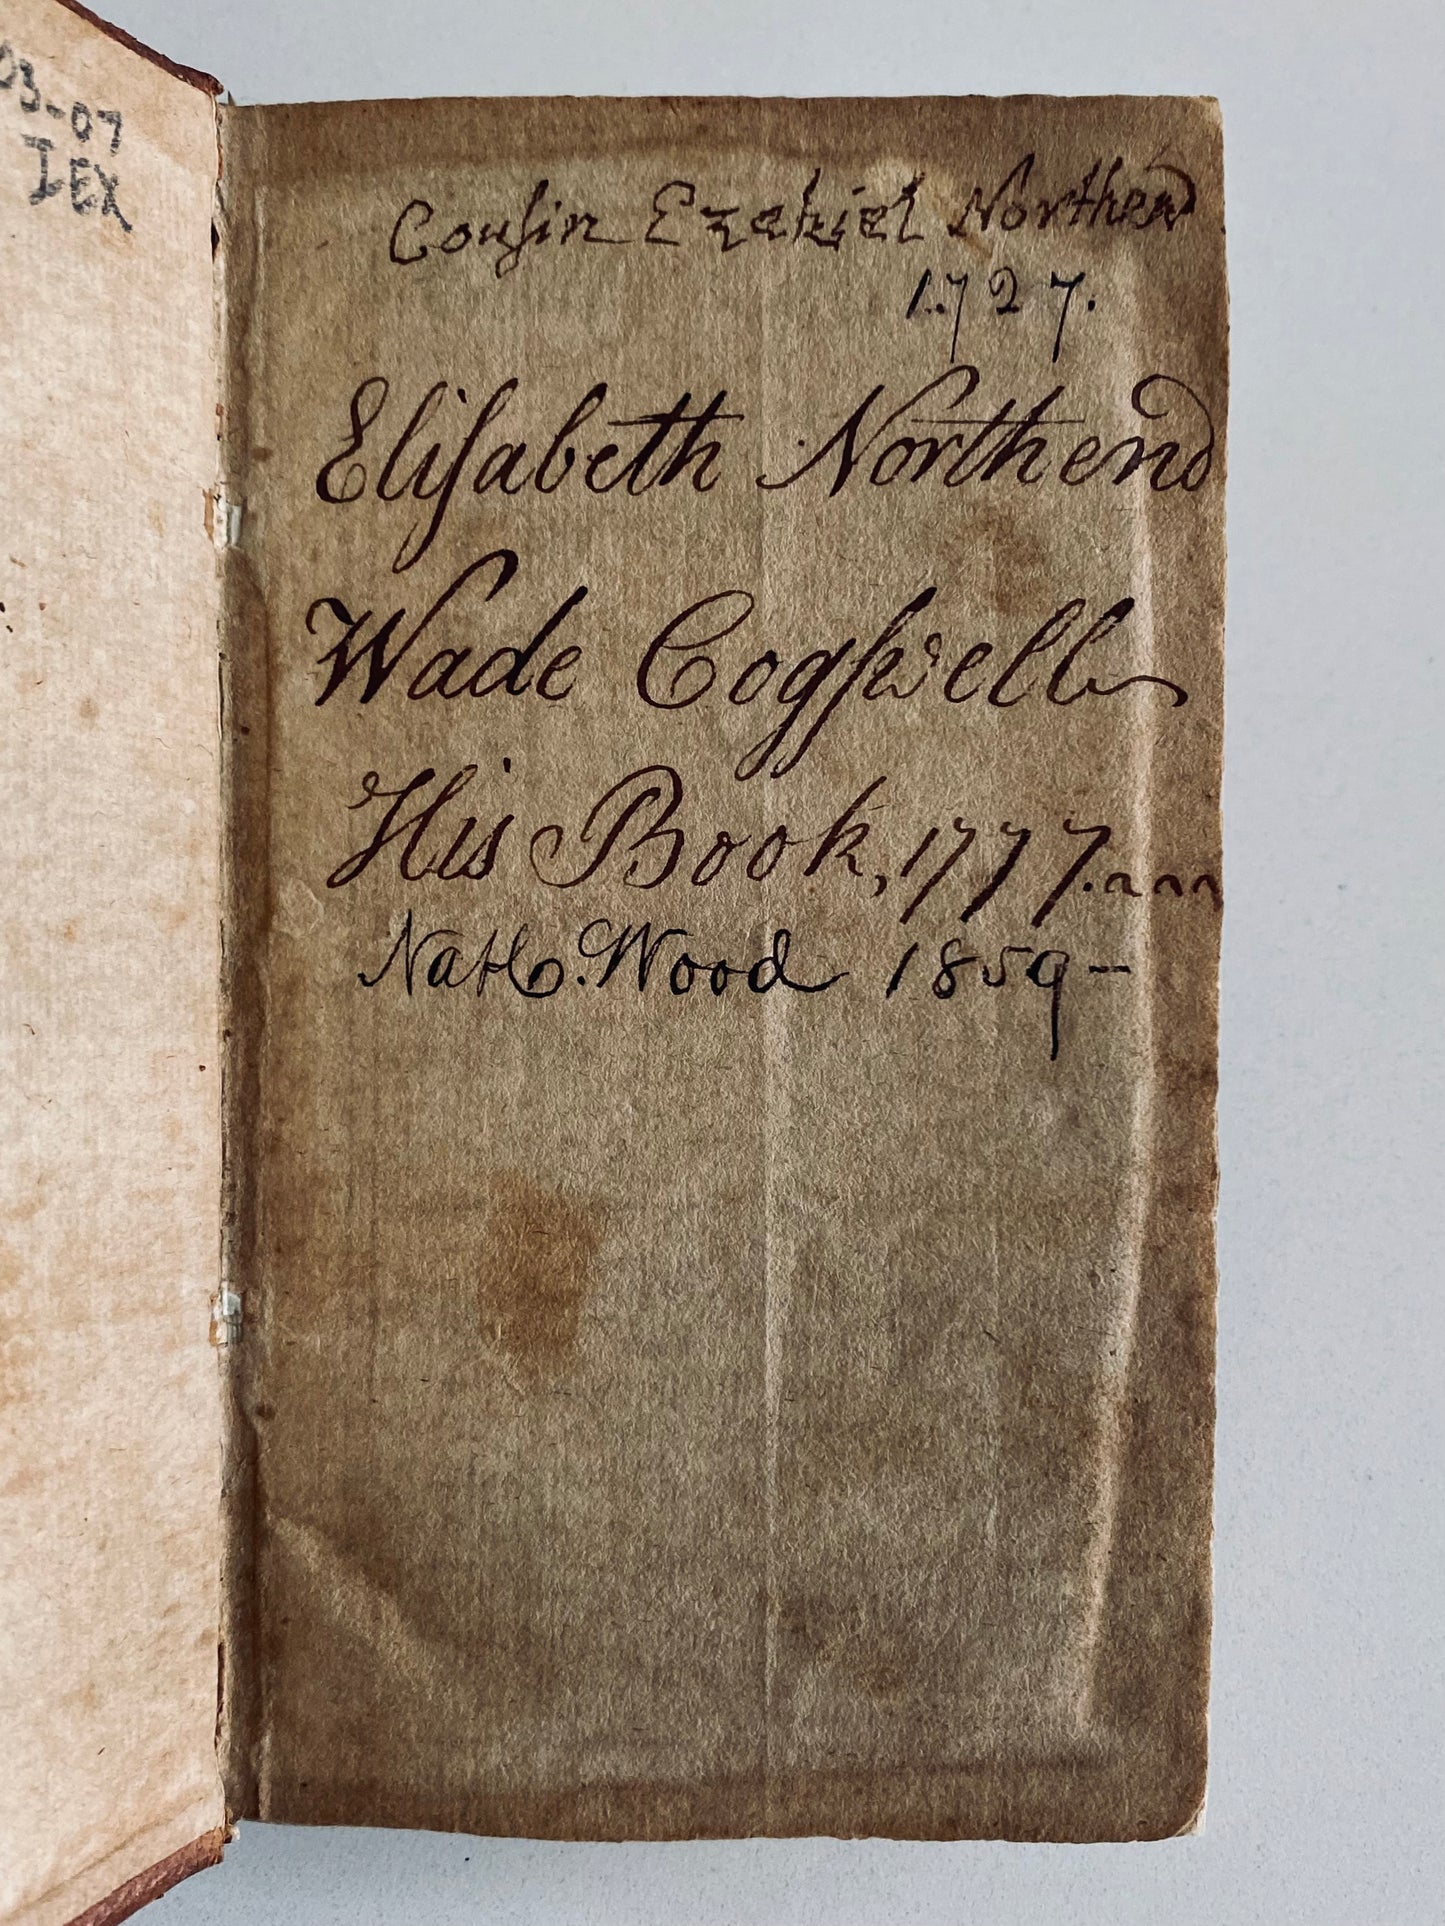 03-07
IEX
Couſin Ezekiel Northend
1727.
Eliſabeth Northend
Wade Cogſwell
His Book, 1777.
Nathl. Wood 1859-